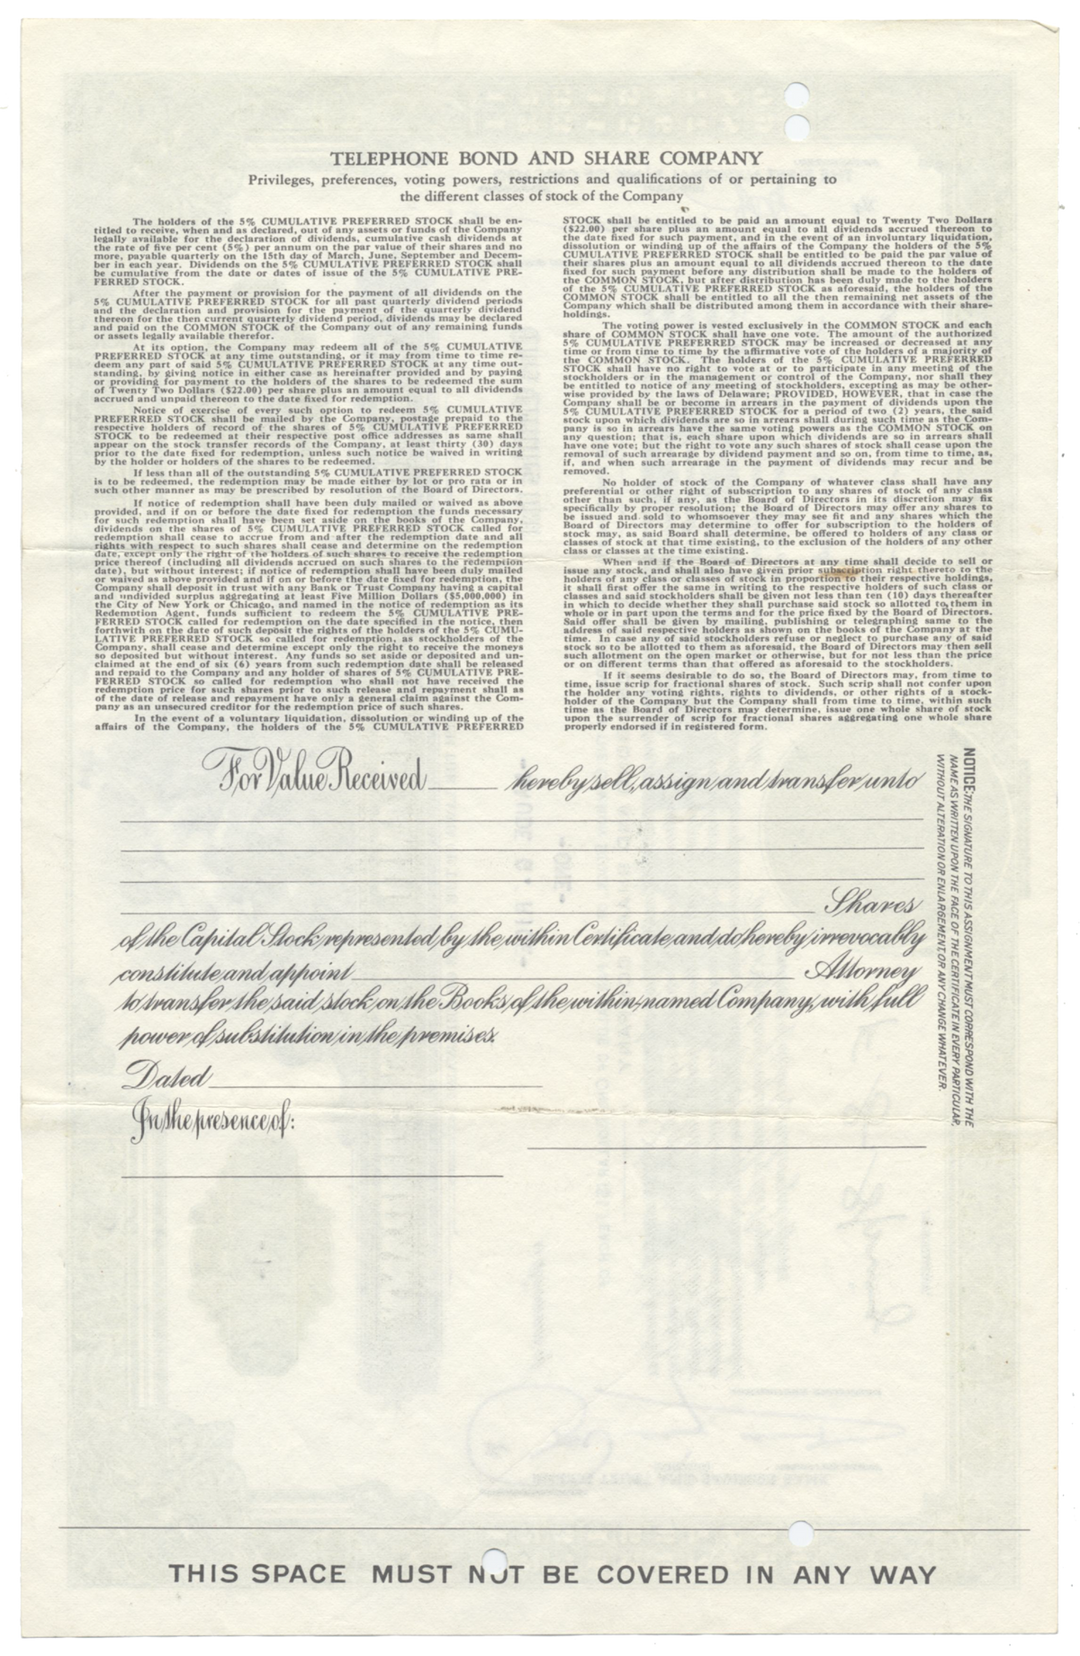 TELEPHONE BOND AND SHARE COMPANY
Privileges, preferences, voting powers, restrictions and qualifications of or pertaining to
the different classes of stock of the Company
The holders of the 5% CUMULATIVE PREFERRED STOCK shall be en-
titled to receive, when and as declared, out of any assets or funds of the Company
legally available for the declaration of dividends, cumulative cash dividends at
the rate of five per cent (5%) per annum on the par value of their shares and no
more, payable quarterly on the 15th day of March, June, September and Decem-
ber in each year. Dividends on the 5% CUMULATIVE PREFERRED STOCK shall
be cumulative from the date or dates of issue of the 5% CUMULATIVE PRE-
FERRED STOCK.
After the payment or provision for the payment of all dividends on the
5% CUMULATIVE PREFERRED STOCK for all past quarterly dividend periods
and the declaration and provision for the payment of the quarterly dividend
thereon for the then current quarterly dividend period, dividends may be declared
and paid on the COMMON STOCK of the Company out of any remaining funds
or assets legally available therefor.
At its option, the Company may redeem all of the 5% CUMULATIVE
PREFERRED STOCK at any time outstanding, or it may from time to time re-
deem any part of said 5% CUMULATIVE PREFERRED STOCK at any time out-
standing, by giving notice in either case as hereinafter provided and by paying
or providing for payment to the holders of the shares to be redeemed the sum
of Twenty Two Dollars ($22.00) per share plus an amount equal to all dividends
accrued and unpaid thereon to the date fixed for redemption.
Notice of exercise of every such option to redeem 5% CUMULATIVE
PREFERRED STOCK shall be mailed by the Company, postage prepaid to the
respective holders of record of the shares of 5% CUMULATIVE PREFERRED
STOCK to be redeemed at their respective post office addresses as same shall
appear on the stock transfer records of the Company, at least thirty (30) days
prior to the date fixed for redemption, unless such notice be waived in writing
by the holder or holders of the shares to be redeemed.
If less than all of the outstanding 5% CUMULATIVE PREFERRED STOCK
is to be redeemed, the redemption may be made either by lot or pro rata or in
such other manner as may be prescribed by resolution of the Board of Directors.
If notice of redemption shall have been duly mailed or waived as above
provided, and if on or before the date fixed for redemption the funds necessary
for such redemption shall have been set aside on the books of the Company,
dividends on the shares of 5% CUMULATIVE PREFERRED STOCK called for
redemption shall cease to accrue from and after the redemption date and all
rights with respect to such shares shall cease and determine on the redemption
date, except only the right of the holders of such shares to receive the redemption
price thereof (including all dividends accrued on such shares to the redemption
date), but without interest; if notice of redemption shall have been duly mailed
or waived as above provided and if on or before the date fixed for redemption, the
Company shall deposit in trust with any Bank or Trust Company having a capital
and undivided surplus aggregating at least Five Million Dollars ($5,000,000) in
the City of New York or Chicago, and named in the notice of redemption as its
Redemption Agent, funds sufficient to redeem the 5% CUMULATIVE PRE-
FERRED STOCK called for redemption on the date specified in the notice, then
forthwith on the date of such deposit the rights of the holders of the 5% CUMU-
LATIVE PREFERRED STOCK so called for redemption, as stockholders of the
Company, shall cease and determine except only the right to receive the moneys
so deposited but without interest. Any funds so set aside or deposited and un-
claimed at the end of six (6) years from such redemption date shall be released
and repaid to the Company and any holder of shares of 5% CUMULATIVE PRE-
FERRED STOCK so called for redemption who shall not have received the
redemption price for such shares prior to such release and repayment shall as
of the date of release and repayment have only a general claim against the Com-
pany as an unsecured creditor for the redemption price of such shares.
In the event of a voluntary liquidation, dissolution or winding up of the
affairs of the Company, the holders of the 5% CUMULATIVE PREFERRED
STOCK shall be entitled to be paid an amount equal to Twenty Two Dollars
($22.00) per share plus an amount equal to all dividends accrued thereon to
the date fixed for such payment, and in the event of an involuntary liquidation,
dissolution or winding up of the affairs of the Company the holders of the 5%
CUMULATIVE PREFERRED STOCK shall be entitled to be paid the par value of
their shares plus an amount equal to all dividends accrued thereon to the date
fixed for such payment before any distribution shall be made to the holders of
the COMMON STOCK, but after distribution has been duly made to the holders
of the 5% CUMULATIVE PREFERRED STOCK as aforesaid, the holders of the
COMMON STOCK shall be entitled to all the then remaining net assets of the
Company which shall be distributed among them in accordance with their share-
holdings.
The voting power is vested exclusively in the COMMON STOCK and each
share of COMMON STOCK shall have one vote. The amount of the authorized
5% CUMULATIVE PREFERRED STOCK may be increased or decreased at any
time or from time to time by the affirmative vote of the holders of a majority of
the COMMON STOCK. The holders of the 5% CUMULATIVE PREFERRED
STOCK shall have no right to vote at or to participate in any meeting of the
stockholders or in the management or control of the Company, nor shall they
be entitled to notice of any meeting of stockholders, excepting as may be other-
wise provided by the laws of Delaware; PROVIDED, HOWEVER, that in case the
Company shall be or become in arrears in the payment of dividends upon the
5% CUMULATIVE PREFERRED STOCK for a period of two (2) years, the said
stock upon which dividends are so in arrears shall during such time as the Com-
pany is so in arrears have the same voting powers as the COMMON STOCK on
any question; that is, each share upon which dividends are so in arrears shall
have one vote; but the right to vote any such shares of stock shall cease upon the
removal of such arrearage by dividend payment and so on, from time to time, as,
if, and when such arrearage in the payment of dividends may recur and be
removed.
No holder of stock of the Company of whatever class shall have any
preferential or other right of subscription to any shares of stock of any class
other than such, if any, as the Board of Directors in its discretion may fix
specifically by proper resolution; the Board of Directors may offer any shares to
be issued and sold to whomsoever they may see fit and any shares which the
Board of Directors may determine to offer for subscription to the holders of
stock may, as said Board shall determine, be offered to holders of any class or
classes of stock at that time existing, to the exclusion of the holders of any other
class or classes at the time existing.
When and if the Board of Directors at any time shall decide to sell or
issue any stock, and shall also have given prior subscription right thereto to the
holders of any class or classes of stock in proportion to their respective holdings,
it shall first offer the same in writing to the respective holders of such class or
classes and said stockholders shall be given not less than ten (10) days thereafter
in which to decide whether they shall purchase said stock so allotted to them in
whole or in part upon the terms and for the price fixed by the Board of Directors.
Said offer shall be given by mailing, publishing or telegraphing same to the
address of said respective holders as shown on the books of the Company at the
time. In case any of said stockholders refuse or neglect to purchase any of said
stock so to be allotted to them as aforesaid, the Board of Directors may then sell
such allotment on the open market or otherwise, but for not less than the price
or on different terms than that offered as aforesaid to the stockholders.
If it seems desirable to do so, the Board of Directors may, from time to
time, issue scrip for fractional shares of stock. Such scrip shall not confer upon
the holder any voting rights, rights to dividends, or other rights of a stock-
holder of the Company but the Company shall from time to time, within such
time as the Board of Directors may determine, issue one whole share of stock
upon the surrender of scrip for fractional shares aggregating one whole share
properly endorsed if in registered form.
For Value Received hereby sell, assign and transfer unto
Shares
of the Capital Stock represented by the within Certificate, and do hereby irrevocably
constitute and appoint Attorney
to transfer the said stock on the Books of the within-named Company, with full
power of substitution in the premises.
Dated
In the presence of:
NOTICE: THE SIGNATURE TO THIS ASSIGNMENT MUST CORRESPOND WITH THE
NAME AS WRITTEN UPON THE FACE OF THE CERTIFICATE IN EVERY PARTICULAR,
WITHOUT ALTERATION OR ENLARGEMENT, OR ANY CHANGE WHATEVER.
THIS SPACE MUST NOT BE COVERED IN ANY WAY